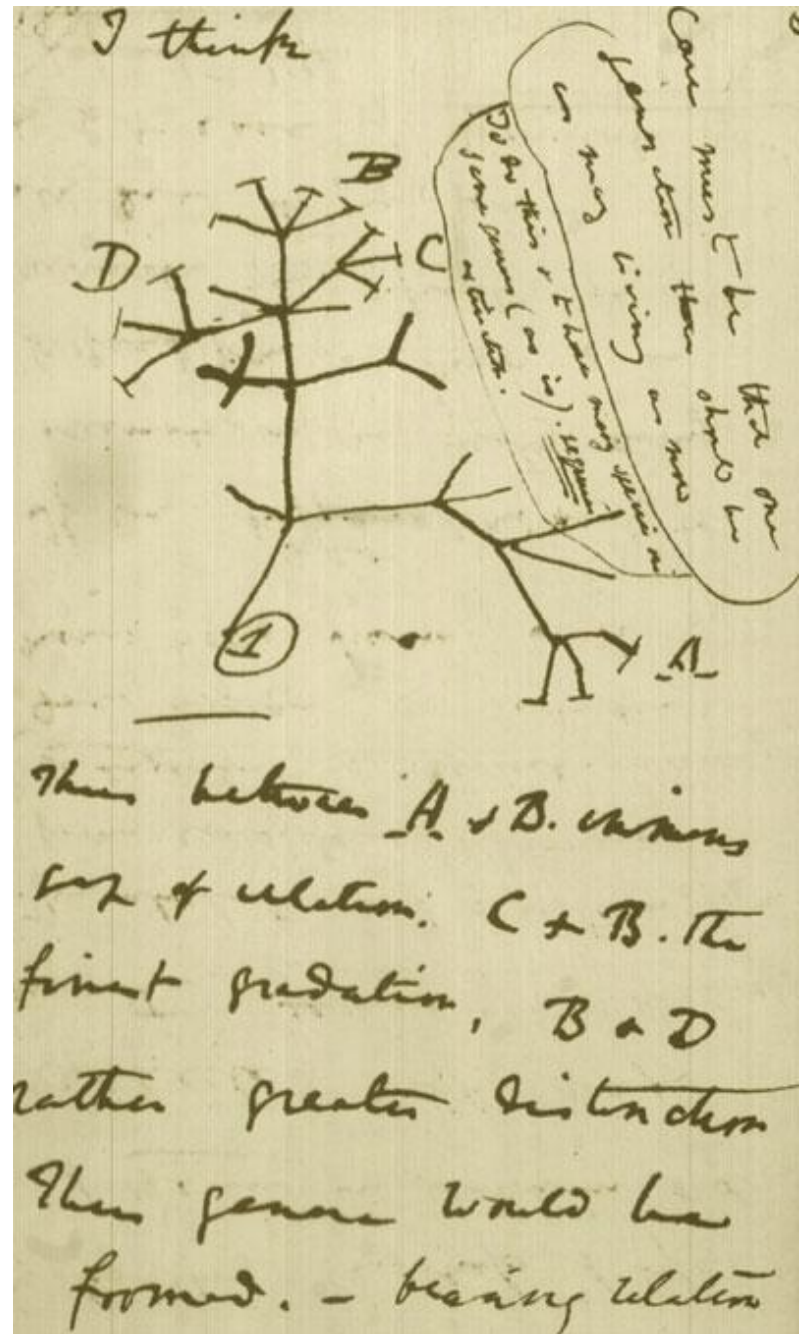 I think
B
D
C
1
A
Case must be that one
generation then should be
as many living as now
To do this & to have many species in
same genus (as is). requires
extinction.
Thus between A & B. immens
gap of relation. C & B. The
finest gradation, B & D
rather greater distinction
Thus genera would be
formed. – bearing relation